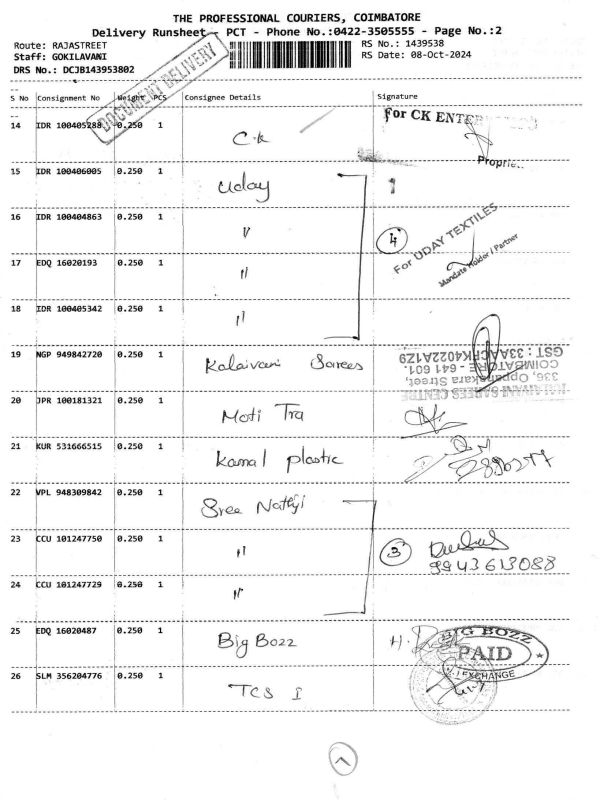 THE PROFESSIONAL COURIERS, COIMBATORE
Delivery Runsheet - PCT - Phone No.:0422-3505555 - Page No.:2
Route: RAJASTREET
RS No.: 1439538
Staff: GOKILAVANI
RS Date: 08-Oct-2024
DRS No.: DCJB143953802
DOCUMENT DELIVERY
S No Consignment No Weight PCS Consignee Details Signature
14 IDR 100405288 0.250 1 C.K
For CK
15 IDR 100406005 0.250 1 Uday
16 IDR 100404863 0.250 1 "
4
For UDAY TEXTILES
Mandate Holder / Partner
17 EDQ 16020193 0.250 1 "
18 IDR 100405342 0.250 1 "
19 NGP 949842720 0.250 1 Kalaivani Sarees
KALAIVANI SAREES CENTRE
336, Oppanakara Street,
COIMBATORE - 641 601.
GST : 33AACFK4022A1Z9
20 JPR 100181321 0.250 1 Moti Tra
21 KUR 531666515 0.250 1 Kamal plastic
22 VPL 948309842 0.250 1 Sree Nathji
23 CCU 101247750 0.250 1 "
3
9943613088
24 CCU 101247729 0.250 1 "
25 EDQ 16020487 0.250 1 Big Bozz
BIG BOZZ
PAID
EXCHANGE
26 SLM 356204776 0.250 1 TCS I